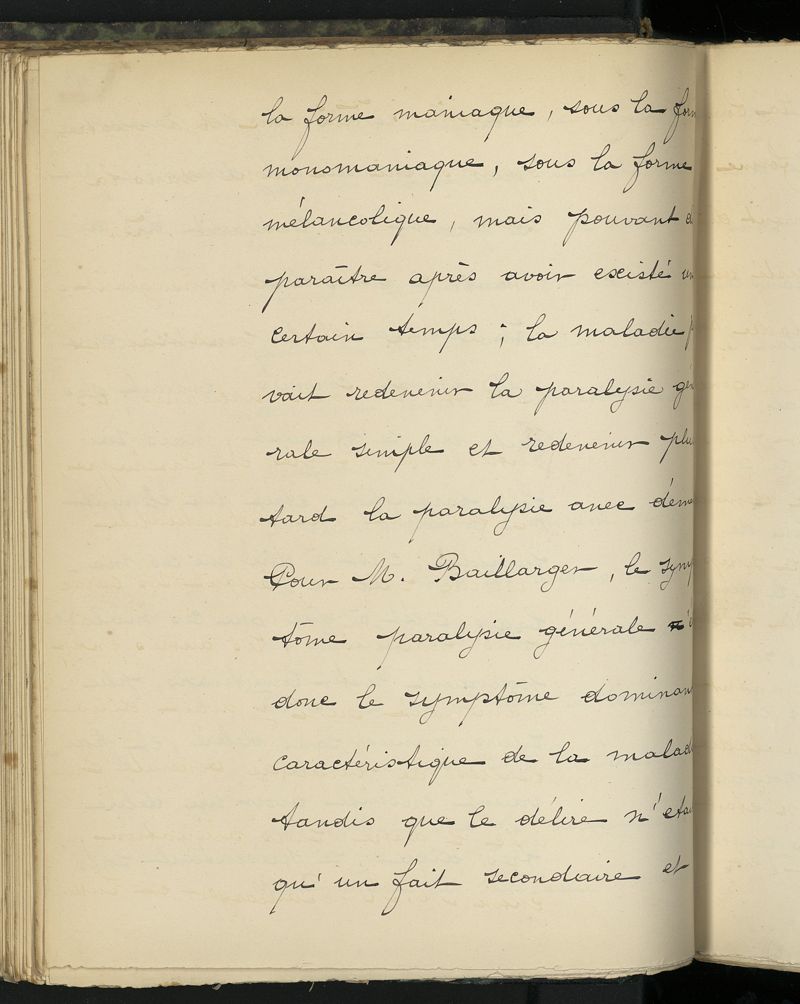 la forme maniaque, sous la for
monomaniaque, sous la forme
mélancolique, mais pouvant
paraître après avoir existé un
certain temps; la maladie p
vait redevenir la paralysie gé
rale simple et redevenir plu
tard la paralysie avec déme
Pour M. Baillarger, le symp
tôme paralysie générale
donc le symptôme dominan
caractéristique de la malad
tandis que le délire n'eta
qu'un fait secondaire et